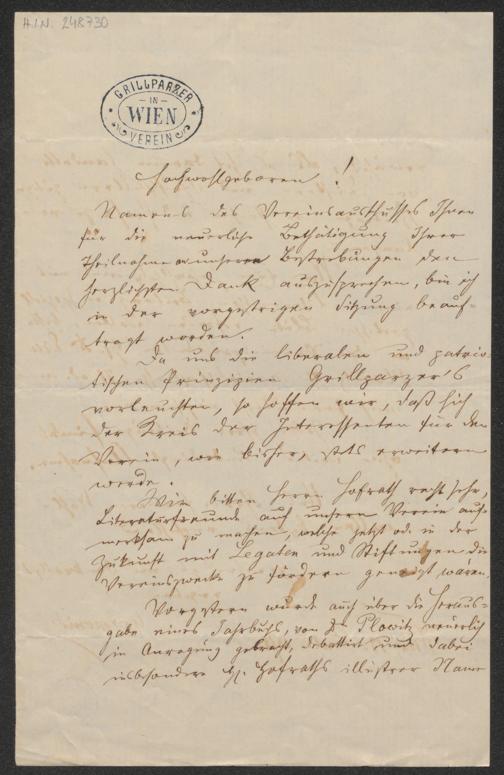 H.I.N. 248730
GRILLPARZER
IN
WIEN
VEREIN
Hochwohlgeboren!
Namens des Vereinsausschusses Ihnen
für die neuerliche Bethätigung Ihrer
Theilnahme an unseren Bestrebungen den
herzlichsten Dank auszusprechen, bin ich
in der vorgestrigen Sitzung beauf-
tragt worden.
Da uns die liberalen und patrio-
tischen Prinzipien Grillparzer's
vorleuchten, so hoffen wir, daß sich
der Kreis der Interessenten für den
Verein, wie bisher, stets erweitern
werde.
Wir bitten Herrn Hofrath recht sehr,
Literaturfreunde auf unsern Verein auf-
merksam zu machen, welche jetzt od. in der
Zukunft mit Legaten und Stiftungen die
Vereinszwecke zu fördern geneigt wären.
Vorgestern wurde auch über die Heraus-
gabe eines Jahrbuchs, von Dr. neuerlich
in Anregung gebracht, debattirt und dabei
insbesondere H. Hofraths illustrer Name